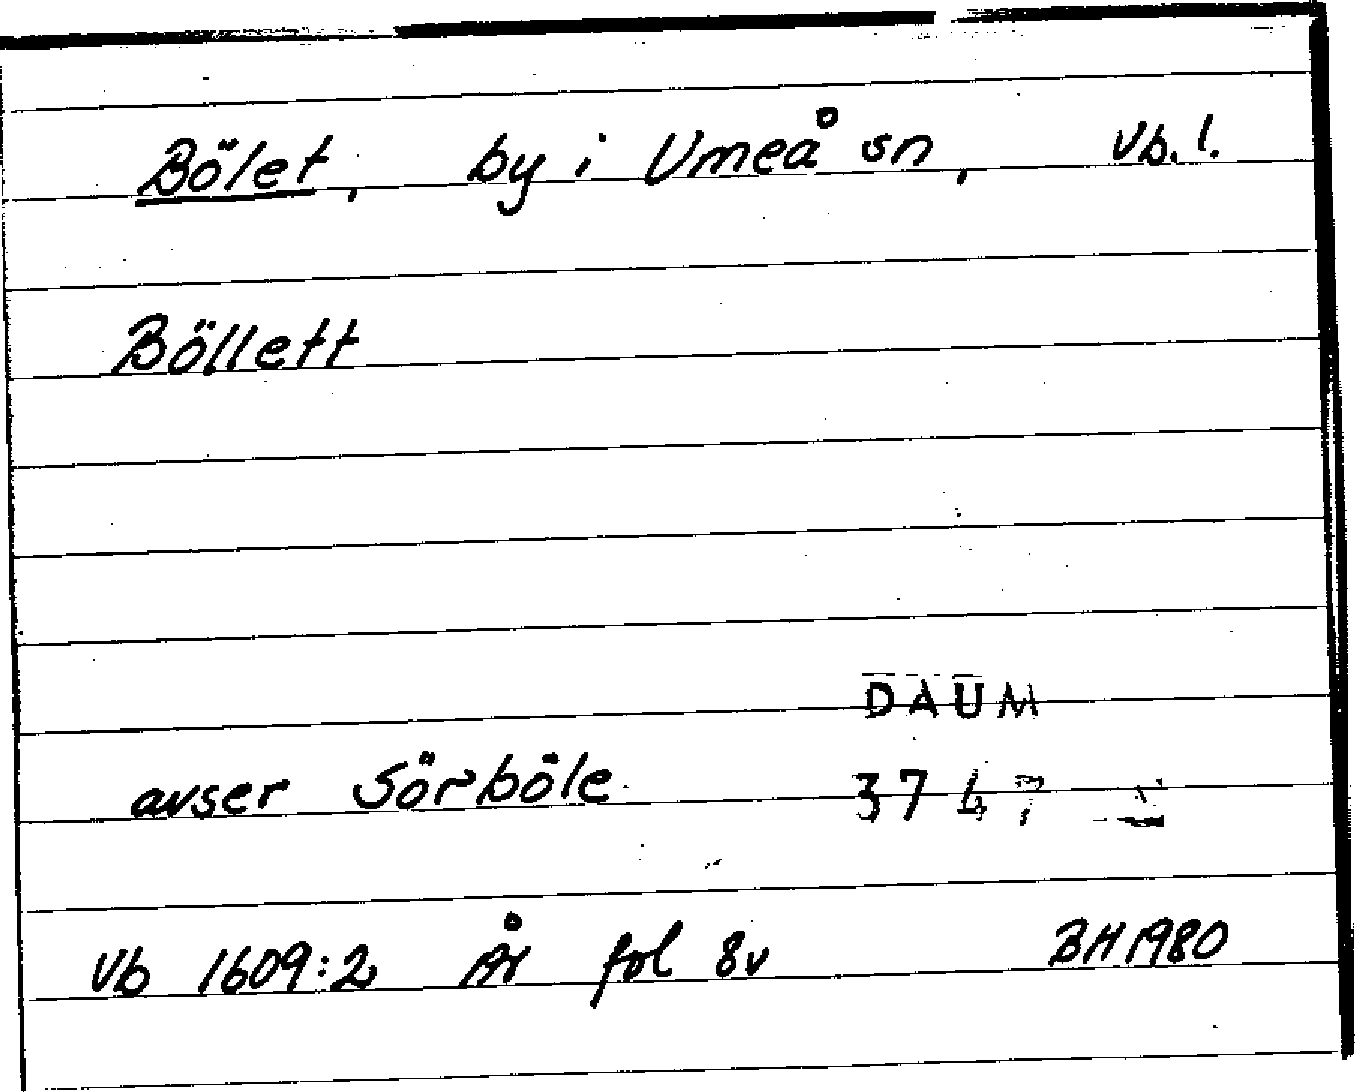 Bölet, by i Umeå sn, Vb. l.
Böllett
DAUM
avser Sörböle
Vb 1609:2 År fol 8v BH 1980